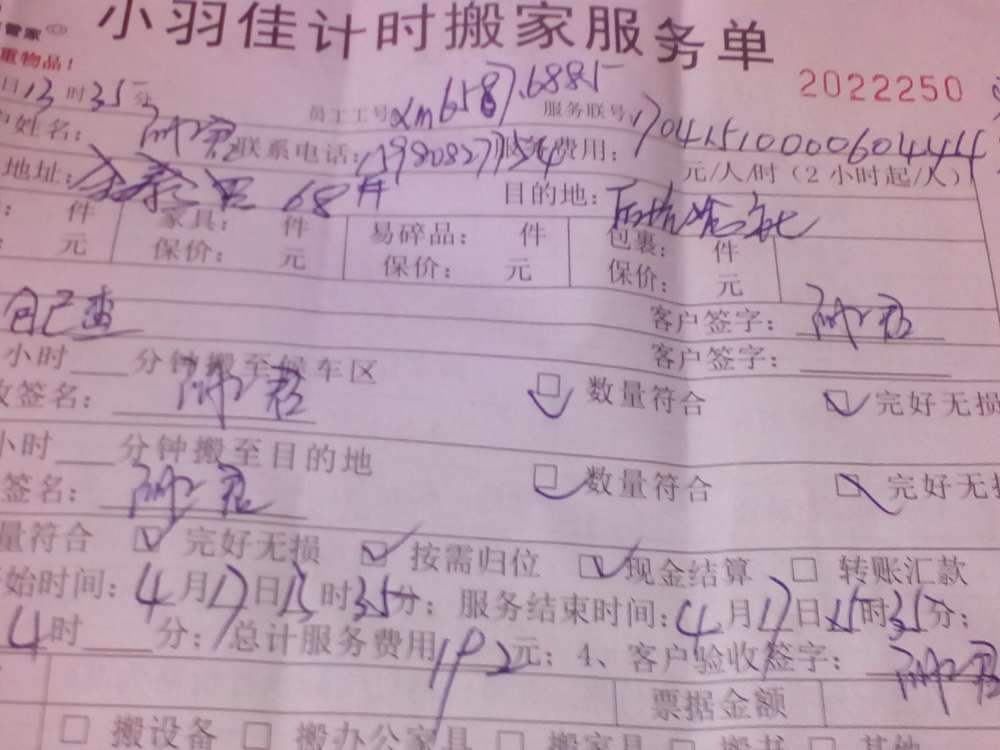 小羽佳计时搬家服务单
管家
重物品！
2022250
日13时35分 员工工号xm6587.6885 服务联号:170415100006044
户姓名： 联系电话： 服务费用： 元/人/时（2小时起/人）
地址： 68# 目的地：
件 家具： 件 易碎品： 件 包裹： 件
元 保价： 元 保价： 元 保价： 元
自己查 客户签字：
小时 分钟搬至候车区 客户签字：
收签名： 数量符合 完好无损
小时 分钟搬至目的地
签名： 数量符合 完好无损
量符合 完好无损 按需归位 现金结算 转账汇款
始时间：4月17日13时35分；服务结束时间：4月17日15时35分；
4时 分；总计服务费用192元；4、客户验收签字：
票据金额
搬设备 搬办公家具 搬家具 搬书 其他